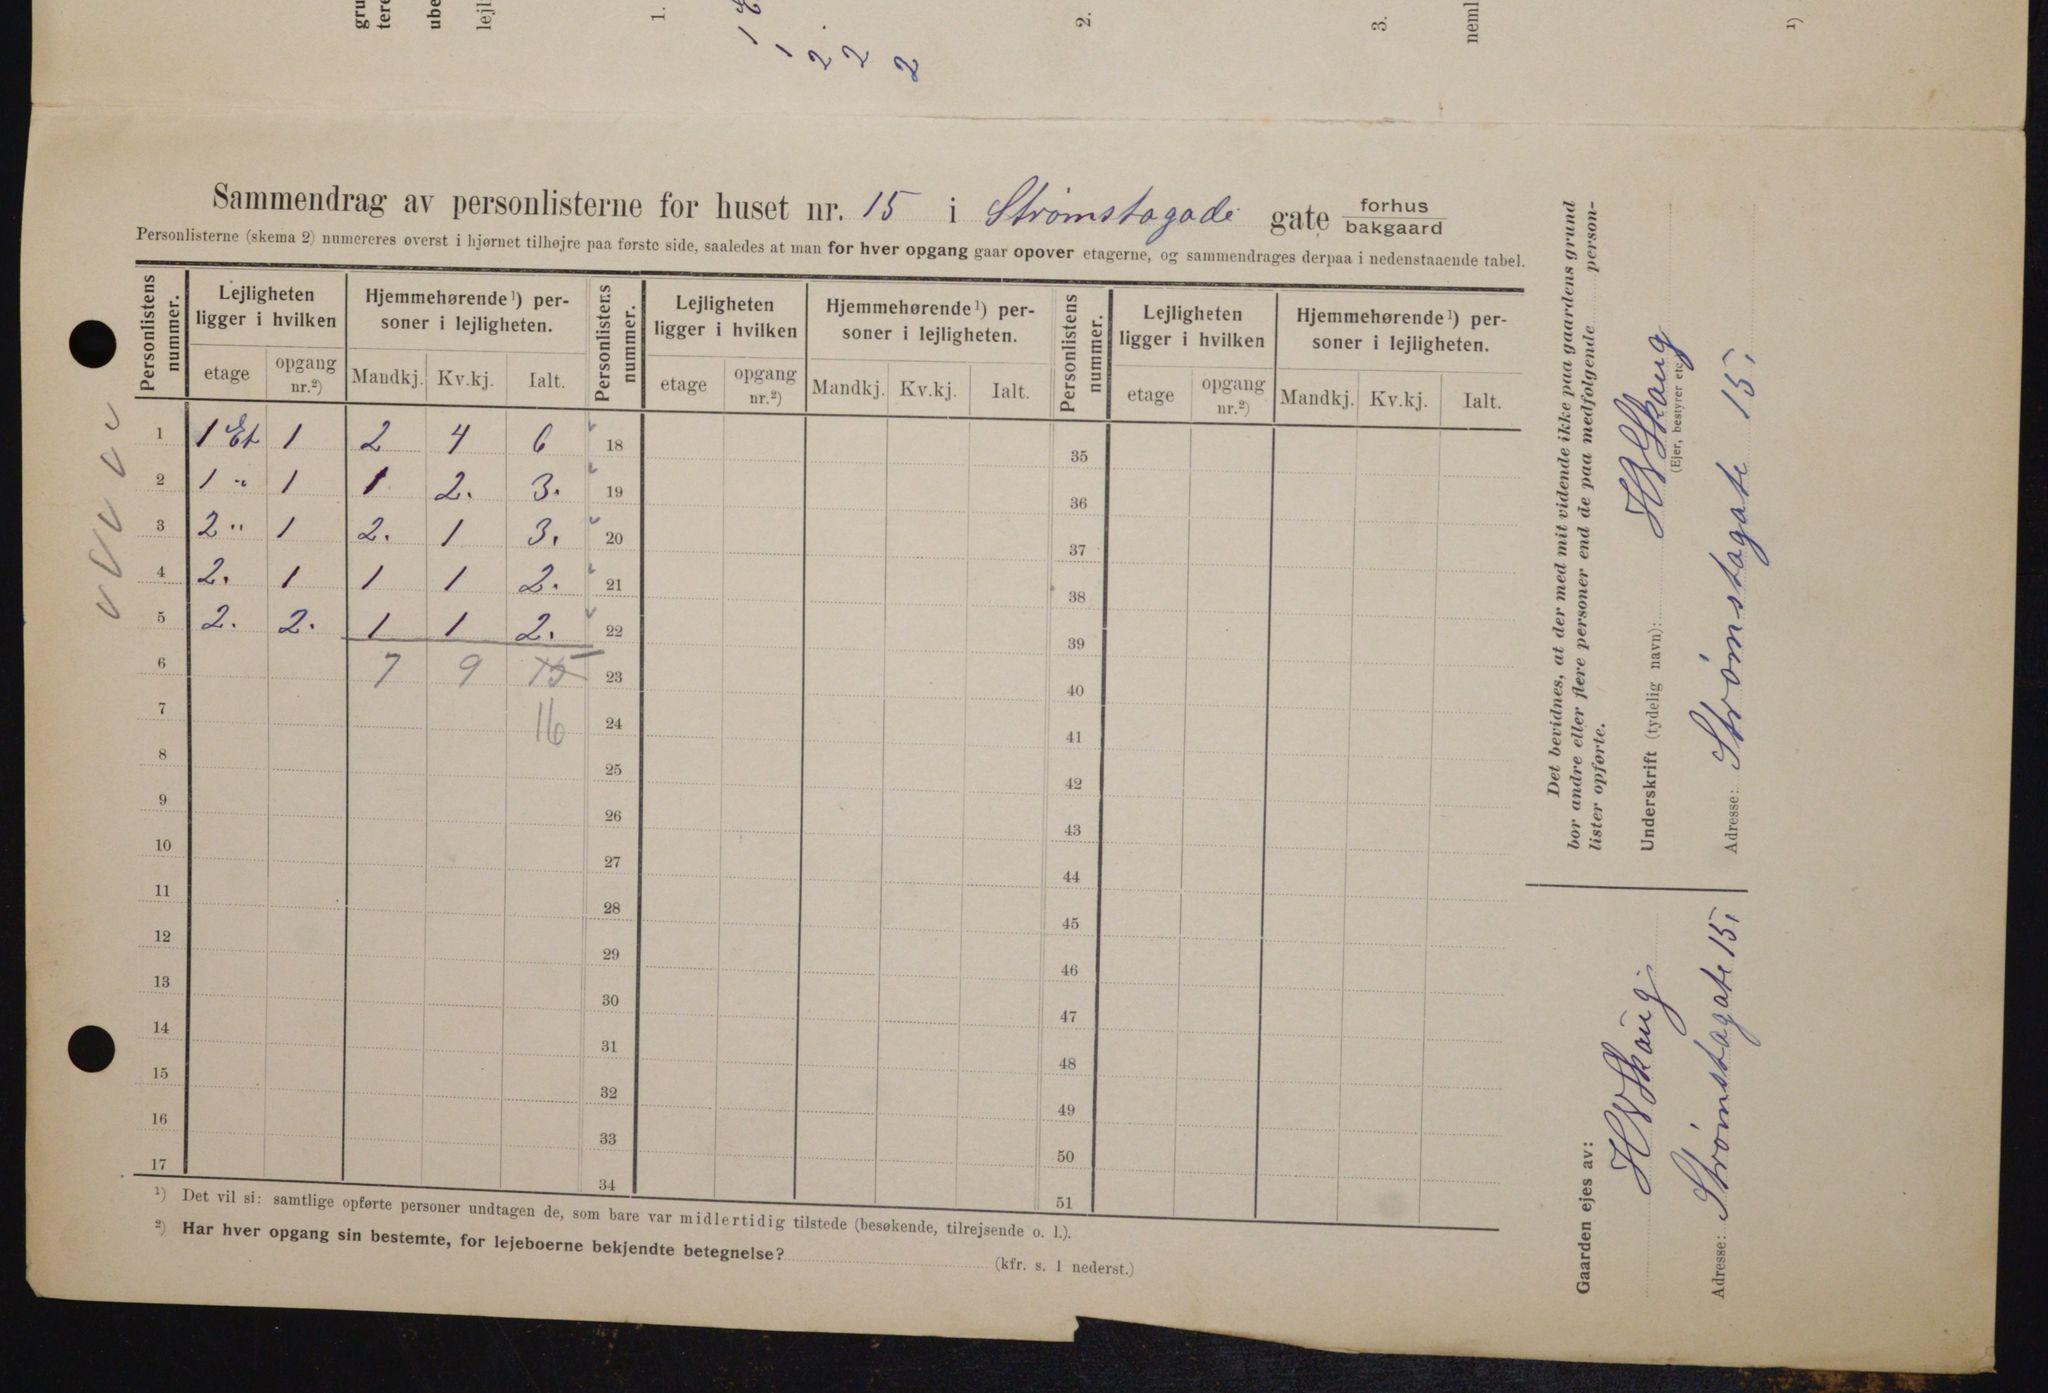 gru
tere
ube
lejl
1.
1 E
1
2
2
2
2.
3.
neml
¹)
Sammendrag av personlisterne for huset nr. 15 i Strømstagade gate forhus bakgaard
Personlisterne (skema 2) numereres øverst i hjørnet tilhøjre paa første side, saaledes at man for hver opgang gaar opover etagerne, og sammendrages derpaa i nedenstaaende tabel.
Personlistens nummer. Lejligheten ligger i hvilken Hjemmehørende¹) personer i lejligheten. Personlistens nummer. Lejligheten ligger i hvilken Hjemmehørende¹) personer i lejligheten. Personlistens nummer. Lejligheten ligger i hvilken Hjemmehørende¹) personer i lejligheten.
etage opgang nr.²) Mandkj. Kv.kj. Ialt. etage opgang nr.²) Mandkj. Kv.kj. Ialt. etage opgang nr.²) Mandkj. Kv.kj. Ialt.
1 1 Et 1 2 4 6 18 35
2 1 " 1 1 2. 3. 19 36
3 2 " 1 2. 1 3. 20 37
4 2. 1 1 1 2. 21 38
5 2. 2. 1 1 2. 22 39
6 7 9 15 23 40
7 16 24 41
8 25 42
9 26 43
10 27 44
11 28 45
12 29 46
13 30 47
14 31 48
15 32 49
16 33 50
17 34 51
¹) Det vil si: samtlige opførte personer undtagen de, som bare var midlertidig tilstede (besøkende, tilrejsende o. l.).
²) Har hver opgang sin bestemte, for lejeboerne bekjendte betegnelse?
(kfr. s. 1 nederst.)
Det bevidnes, at der med mit vidende ikke paa gaardens grund
bor andre eller flere personer end de paa medfølgende personlister opførte.
Underskrift (tydelig navn): H W Skaug
(Ejer, bestyrer etc.)
Adresse: Strømstagate 15,
Gaarden ejes av:
H W Skaug
Adresse: Strømstagate 15,